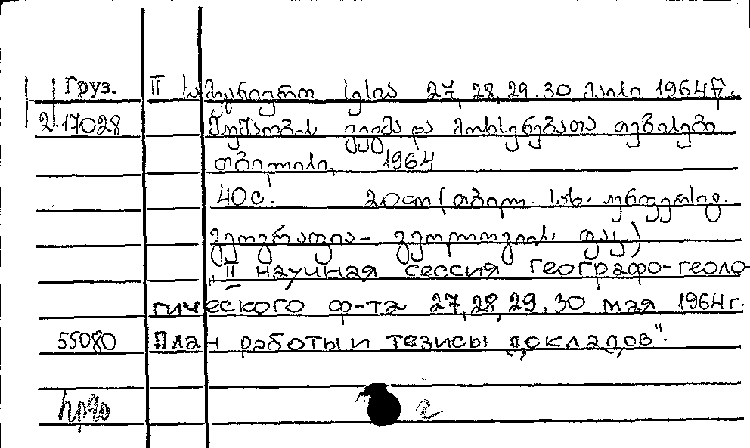 Груз. II სამეცნიერო სესია 27, 28, 29. 30 მაისი 1964წ.
2 17028 მუშაობ-ს გეგმა და მოხსენებათა თეზისები
თბილისი, 1964
40с. 20 თ (თბილ. სახ. უნივერსიტ.
გეოგრაფია- გეოლოგიის ფაკ.)
„II научная сессия географо-геоло-
гического ф-та 27, 28, 29, 30 мая 1964г.
55080 План работы и тезисы докладов".